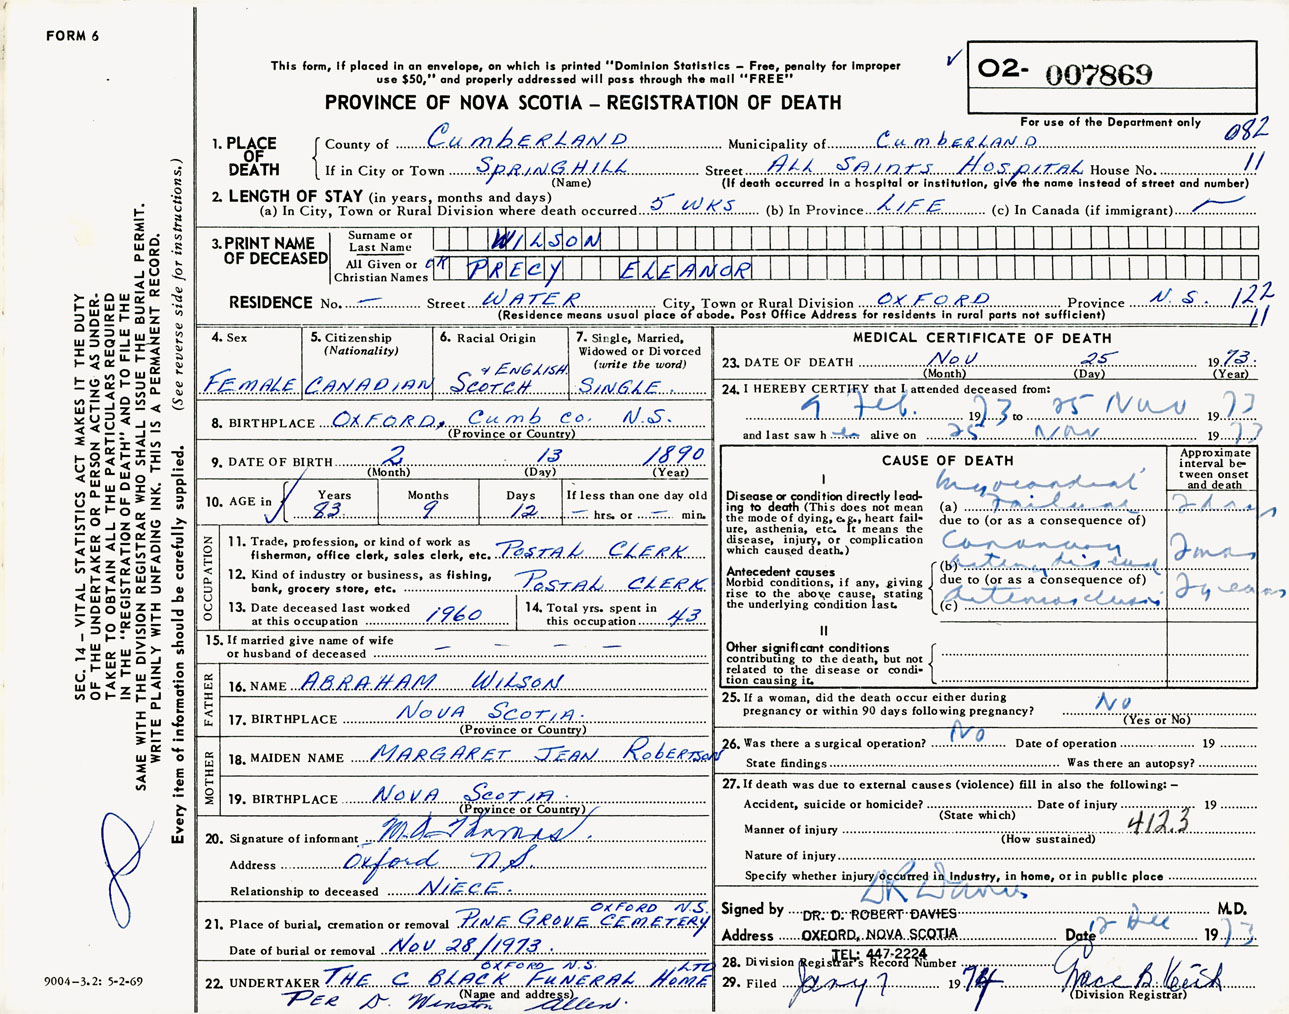 FORM 6
This form, if placed in an envelope, on which is printed "Dominion Statistics – Free, penalty for improper
use $50," and properly addressed will pass through the mail "FREE"
PROVINCE OF NOVA SCOTIA – REGISTRATION OF DEATH
✓ O2- 007869
For use of the Department only
082
11
1. PLACE OF DEATH
County of CUMBERLAND Municipality of CUMBERLAND
If in City or Town SPRINGHILL Street ALL SAINTS HOSPITAL House No.
(Name) (If death occurred in a hospital or institution, give the name instead of street and number)
2. LENGTH OF STAY (in years, months and days)
(a) In City, Town or Rural Division where death occurred 5 WKS (b) In Province LIFE (c) In Canada (if immigrant) —
3. PRINT NAME OF DECEASED
Surname or Last Name WILSON
All Given or Christian Names OK PRECY ELEANOR
RESIDENCE No. — Street WATER City, Town or Rural Division OXFORD Province N.S. 122
(Residence means usual place of abode. Post Office Address for residents in rural parts not sufficient) 11
4. Sex FEMALE
5. Citizenship (Nationality) CANADIAN
6. Racial Origin SCOTCH + ENGLISH
7. Single, Married, Widowed or Divorced (write the word) SINGLE.
8. BIRTHPLACE OXFORD, CUMB CO. N.S.
(Province or Country)
9. DATE OF BIRTH 2 13 1890
(Month) (Day) (Year)
10. AGE in ✓ Years 83 Months 9 Days 12 If less than one day old — hrs. or — min.
OCCUPATION
11. Trade, profession, or kind of work as
fisherman, office clerk, sales clerk, etc. POSTAL CLERK
12. Kind of industry or business, as fishing,
bank, grocery store, etc. POSTAL CLERK
13. Date deceased last worked
at this occupation 1960
14. Total yrs. spent in
this occupation 43
15. If married give name of wife
or husband of deceased — — — —
FATHER
16. NAME ABRAHAM WILSON
17. BIRTHPLACE NOVA SCOTIA.
(Province or Country)
MOTHER
18. MAIDEN NAME MARGARET JEAN ROBERTSON
19. BIRTHPLACE NOVA SCOTIA.
(Province or Country)
20. Signature of informant Thomas
Address Oxford N S.
Relationship to deceased NIECE.
21. Place of burial, cremation or removal PINE GROVE CEMETERY OXFORD N.S.
Date of burial or removal NOV 28/1973.
22. UNDERTAKER THE C BLACK FUNERAL HOME LTD OXFORD N.S.
(Name and address)
PER D. Winston Allen.
MEDICAL CERTIFICATE OF DEATH
23. DATE OF DEATH NOV 25 1973.
(Month) (Day) (Year)
24. I HEREBY CERTIFY that I attended deceased from:
9 Feb. 1973 to 25 Nov 1973
and last saw h er alive on 25 Nov 1973
CAUSE OF DEATH
Approximate interval between onset and death
I
Disease or condition directly leading to death (This does not mean
the mode of dying, e.g., heart failure, asthenia, etc. It means the
disease, injury, or complication
which caused death.)
(a) Myocardial failure
due to (or as a consequence of)
Antecedent causes
Morbid conditions, if any, giving
rise to the above cause, stating
the underlying condition last.
(b) Coronary Artery disease
due to (or as a consequence of)
(c) Arteriosclerosis 2 years
II
Other significant conditions
contributing to the death, but not
related to the disease or condition causing it.
25. If a woman, did the death occur either during
pregnancy or within 90 days following pregnancy? No
(Yes or No)
26. Was there a surgical operation? No Date of operation 19
State findings Was there an autopsy?
27. If death was due to external causes (violence) fill in also the following: –
Accident, suicide or homicide? Date of injury 19
(State which)
Manner of injury 412.3
(How sustained)
Nature of injury
Specify whether injury occurred in Industry, in home, or in public place
Signed by DR Davies M.D.
DR. D. ROBERT DAVIES
Address OXFORD, NOVA SCOTIA Date 12 Dec 1973
TEL: 447-2224
28. Division Registrar's Record Number
29. Filed Jany 7 1974 Grace B. Keith
(Division Registrar)
SEC. 14 – VITAL STATISTICS ACT MAKES IT THE DUTY
OF THE UNDERTAKER OR PERSON ACTING AS UNDER-
TAKER TO OBTAIN ALL THE PARTICULARS REQUIRED
IN THE "REGISTRATION OF DEATH" AND TO FILE THE
SAME WITH THE DIVISION REGISTRAR WHO SHALL ISSUE THE BURIAL PERMIT.
WRITE PLAINLY WITH UNFADING INK. THIS IS A PERMANENT RECORD.
Every item of information should be carefully supplied. (See reverse side for instructions.)
9004-3.2: 5-2-69